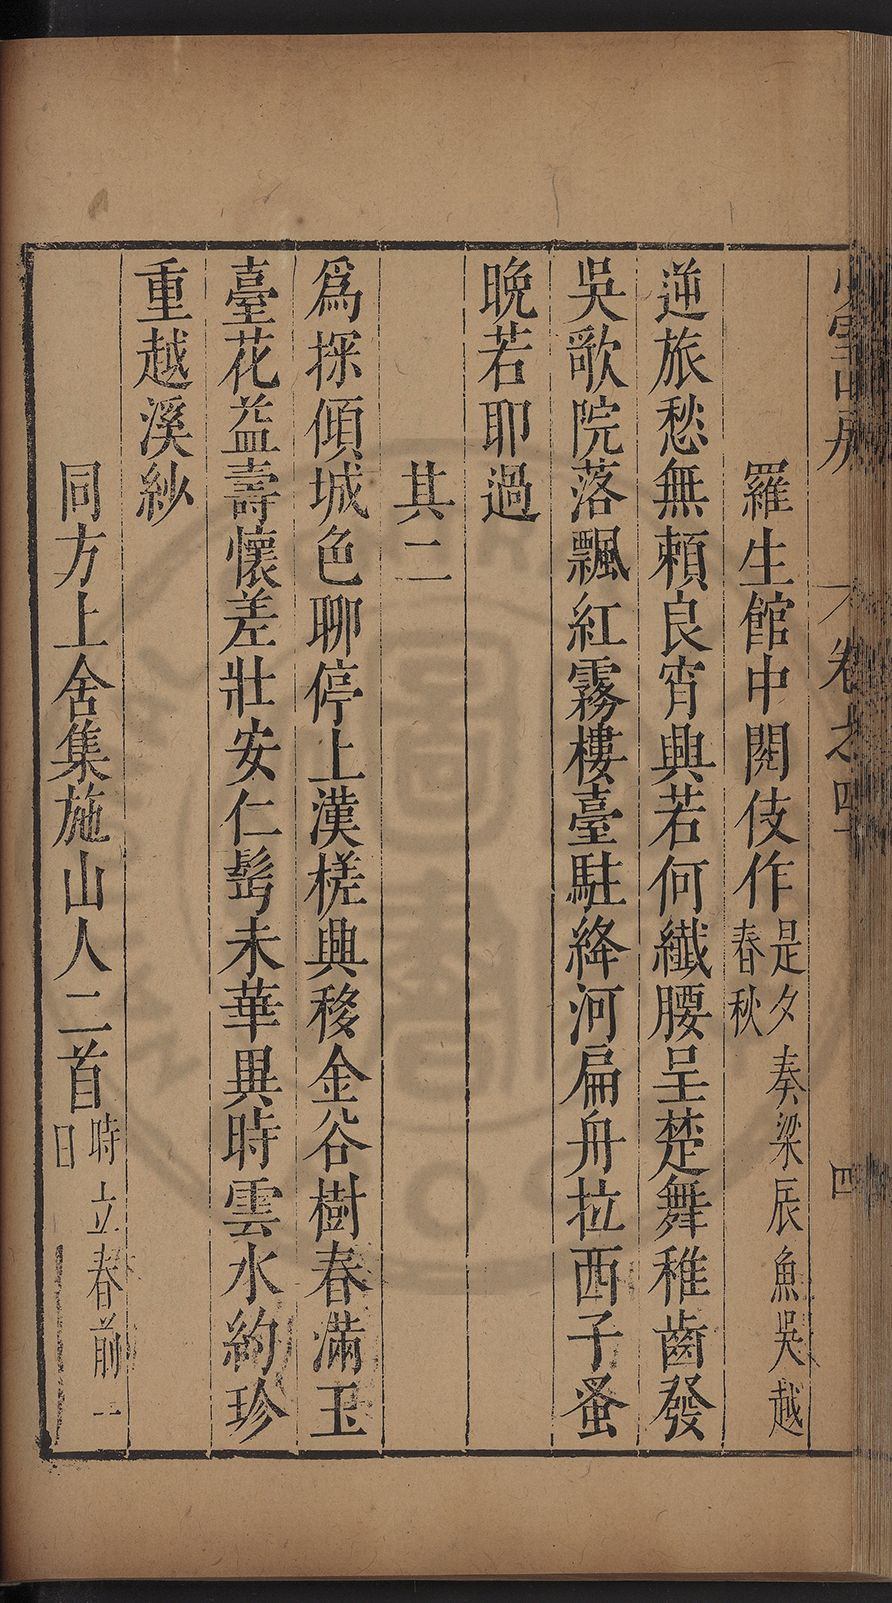 少室山房
卷之四十
四
羅生館中閱伎作是夕奏梁辰魚吳越春秋
逆旅愁無頼良宵興若何纖腰呈楚舞稚齒發
吳歌院落飄紅霧樓臺駐絳河扁舟拉西子蚤
晚若耶過
其二
爲探傾城色聊停上漢槎興移金谷樹春滿玉
臺花益壽懷差壯安仁髩未華異時雲水約珍
重越溪紗
同方上舍集施山人二首時立春前一日